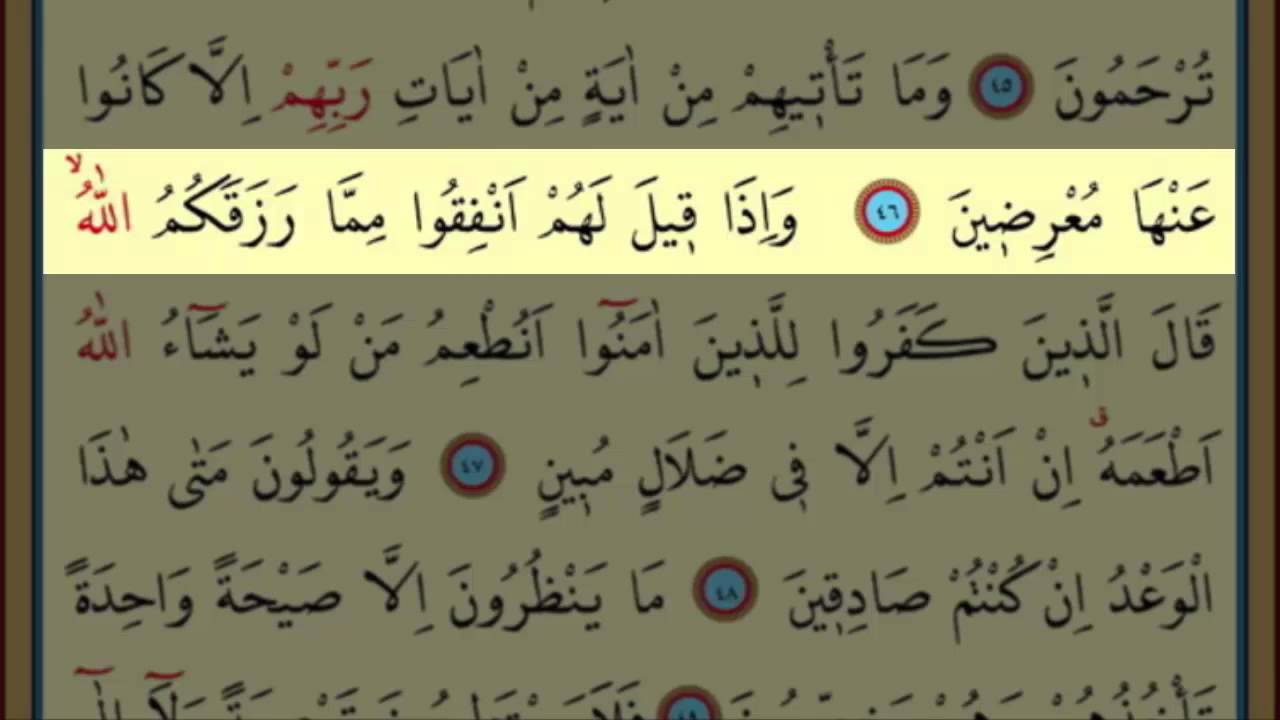 تُرْحَمُونَ ٤٥ وَمَا تَأْتٖيهِمْ مِنْ اٰيَةٍ مِنْ اٰيَاتِ رَبِّهِمْ اِلَّا كَانُوا
عَنْهَا مُعْرِضٖينَ ٤٦ وَاِذَا قٖيلَ لَهُمْ اَنْفِقُوا مِمَّا رَزَقَكُمُ اللّٰهُۙ
قَالَ الَّذٖينَ كَفَرُوا لِلَّذٖينَ اٰمَنُٓوا اَنُطْعِمُ مَنْ لَوْ يَشَٓاءُ اللّٰهُ
اَطْعَمَهُ اِنْ اَنْتُمْ اِلَّا فٖى ضَلَالٍ مُبٖينٍ ٤٧ وَيَقُولُونَ مَتٰى هٰذَا
الْوَعْدُ اِنْ كُنْتُمْ صَادِقٖينَ ٤٨ مَا يَنْظُرُونَ اِلَّا صَيْحَةً وَاحِدَةً